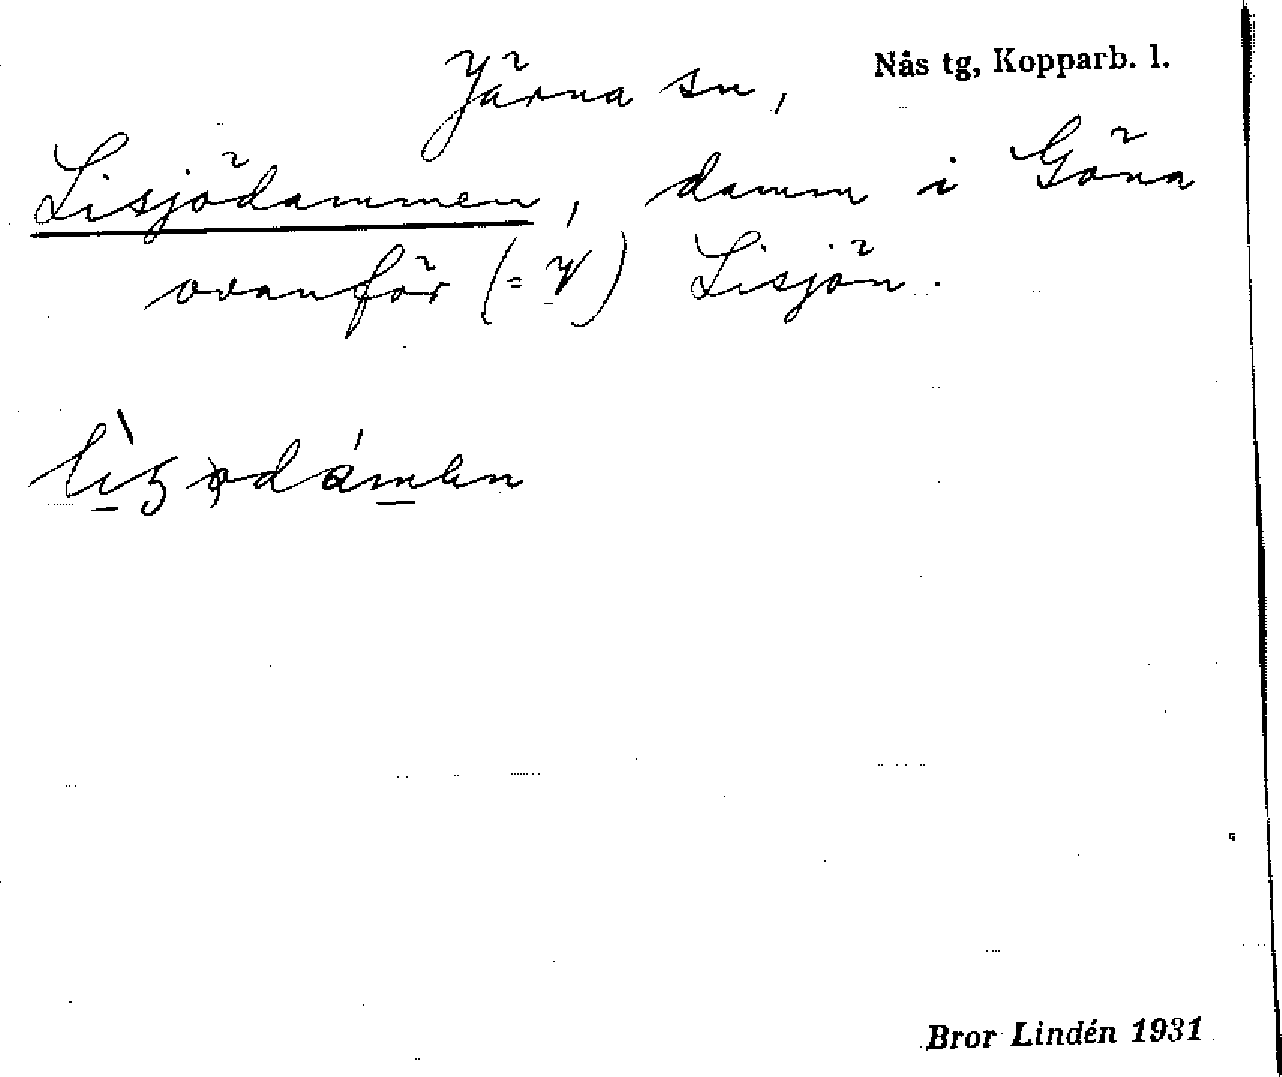 Nås tg, Kopparb. l.
Järna sn,
Lisjödammen, damm i Göna
ovanför (= V) Lisjön.
Bror Lindén 1931